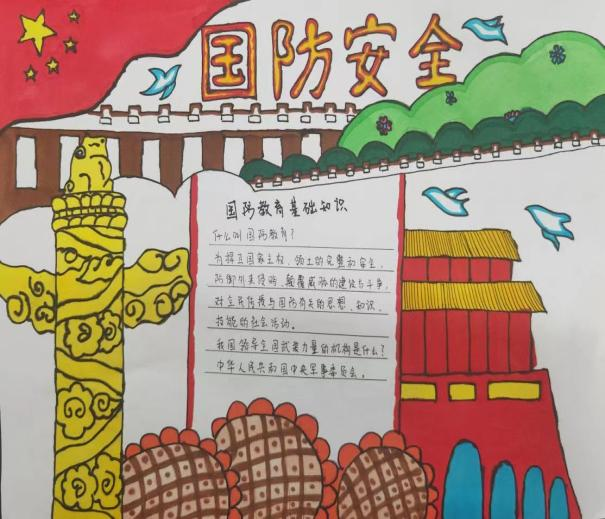 国防安全
国防教育基础知识
什么叫国防教育？
为捍卫国家主权、领土的完整和安全，
防御外来侵略、颠覆威胁的建设与斗争，
对全民传授与国防有关的思想、知识、
技能的社会活动。
我国领导全国武装力量的机构是什么？
中华人民共和国中央军事委员会。